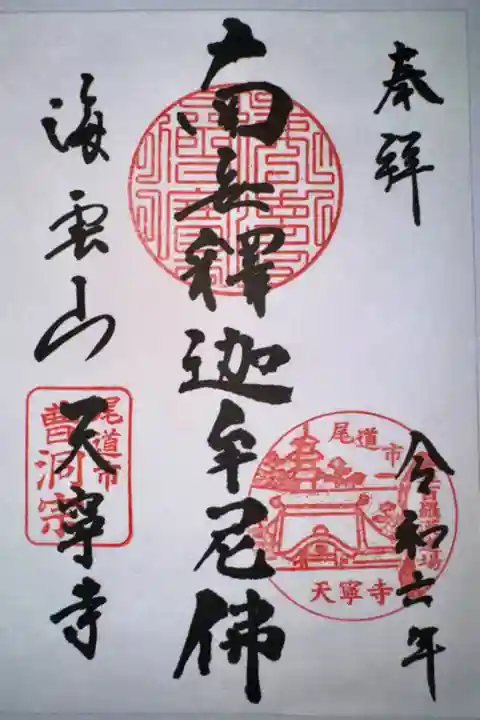 奉拝
令和六年
南無釋迦牟尼佛
海雲山
天寧寺
尾道市
天寧寺
尾道市
曹洞宗